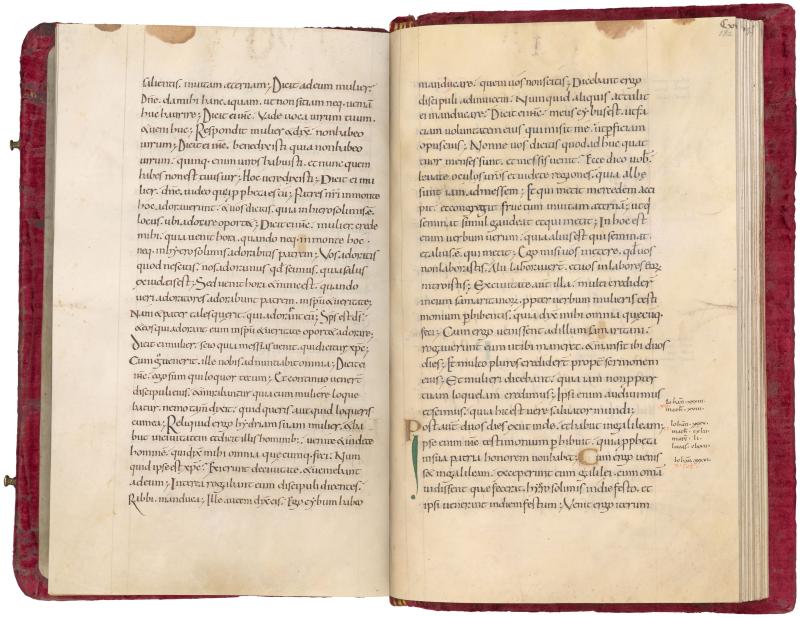 salientis. inuitam aeternam; Dicit adeum mulier.
Dñe. damihi hanc aquam. ut nonsitiam neq. ueniã
huc haurire; Dicit ei iħc. Uade uoca uirum tuum.
&ueni huc; Respondit mulier &dyx̃. nonhabeo
uirum; Dicit ei iħc. benedixisti quia nonhabeo
uirum. quinq. enim uiros habuisti. et nunc quem
habes nonest tuus uir; Hoc uere dixisti; Dicit ei mu
lier. dñe. uideo quia propheta es tu; Patres nr̃i inmonte
hoc adorauerunt. &uos dicitis. quia inhierosolimis ẽ
locus. ubi adorare oport&; Dicit ei iħc. mulier. crede
mihi. quia uenit hora. quando neq. inmonte hoc
neq. inhyerosolimis adorabitis patrem; Vos adoratis
quod nescitis. nos adoramus qđ scimus. quia salus
exiudaeis est; Sed uenit hora &nunc est. quando
ueri adoratores adorabunt patrem. inspũ &ueritate;
Nam &pater tales querit. qui adorent eũ; Sp̃s est ds̃.
&eos qui adorant eum inspũ &ueritate oport& adorare;
Dicit ei mulier. scio quia messias uenit. qui dicitur xp̃c;
Cum g̊ uenerit. ille nobis adnuntiabit omnia; Dicit ei
iħc. ego sum qui loquor tecum; Et continuo uenert̃
discipuli eius. &mirabantur quia cum muliere loque
batur. nemo tam̃ dixit. quid queris aut quid loqueris
cumea; Reliquid ergo hydriam suam mulier. &ha
buit inciuitatem &dicit illis hominib;. uenite &uidete
hominẽ. qui dyx̃ mihi omnia quecumq. feci. Num
quid ipse est xp̃c; Exierunt deciuitate. &ueniebant
adeum; Interea rogabant eum discipuli dicentes.
Rabbi. manduca; Ille autem dyx̃ eis. Ego cybum habeo
Cxv
182
manducare. quem uos nonscitis; Dicebant ergo
discipuli adinuicem. Numquid aliquis attulit
ei manducare; Dicit ei iħc. meus cybus est. ut fa
ciam uoluntatem eius qui misit me. ut pficiam
opus eius; Nonne uos dicitis quod adhuc quat
tuor menses sunt. et messis uenit; Ecce dico uob̃.
leuate oculos ur̃os et uidete regiones. quia albe
sunt iam admessem; Et qui metit mercedem acci
pit. et congregat fructum inuitam aeternã; ut q
seminat simul gaudeat et qui metit; In hoc est
enim uerbum uerum. quia alius est qui seminat.
et alius ẽ. qui metit; Ego misi uos metere. qđ uos
nonlaborastis. Alii laborauert̃. et uos inlabores eor
introistis; Exciuitate aut̃ illa. multi credider̃
ineum samaritanorũ. ppter uerbum mulieris testi
monium phibentis. quia dyx̃ mihi omnia quecũq.
feci; Cum ergo uenissent adillum samaritani.
rogauerunt eum ut ibi maneret. &mansit ibi duos
dies; Et multo plures credider̃ propt̃ sermonem
eius; Et mulieri dicebant. quia iam non ppter
tuam loquelam credimus; Ipsi enim audiuimus
et scimus. quia hic est uere saluator mundi;
Post aut̃ duos dies exiit inde. et habiit ingalileam;
ipse enim iħc testimonium phibuit. quia ppheta
insua patria honorem nonhabet; Cum ergo uenis
set ingalileam. exceperunt eum galilei. cum omia
uidissent quae fecerat. hyerosolimis indie festo. et
ipsi uenerunt indiem festum; Venit ergo iterum